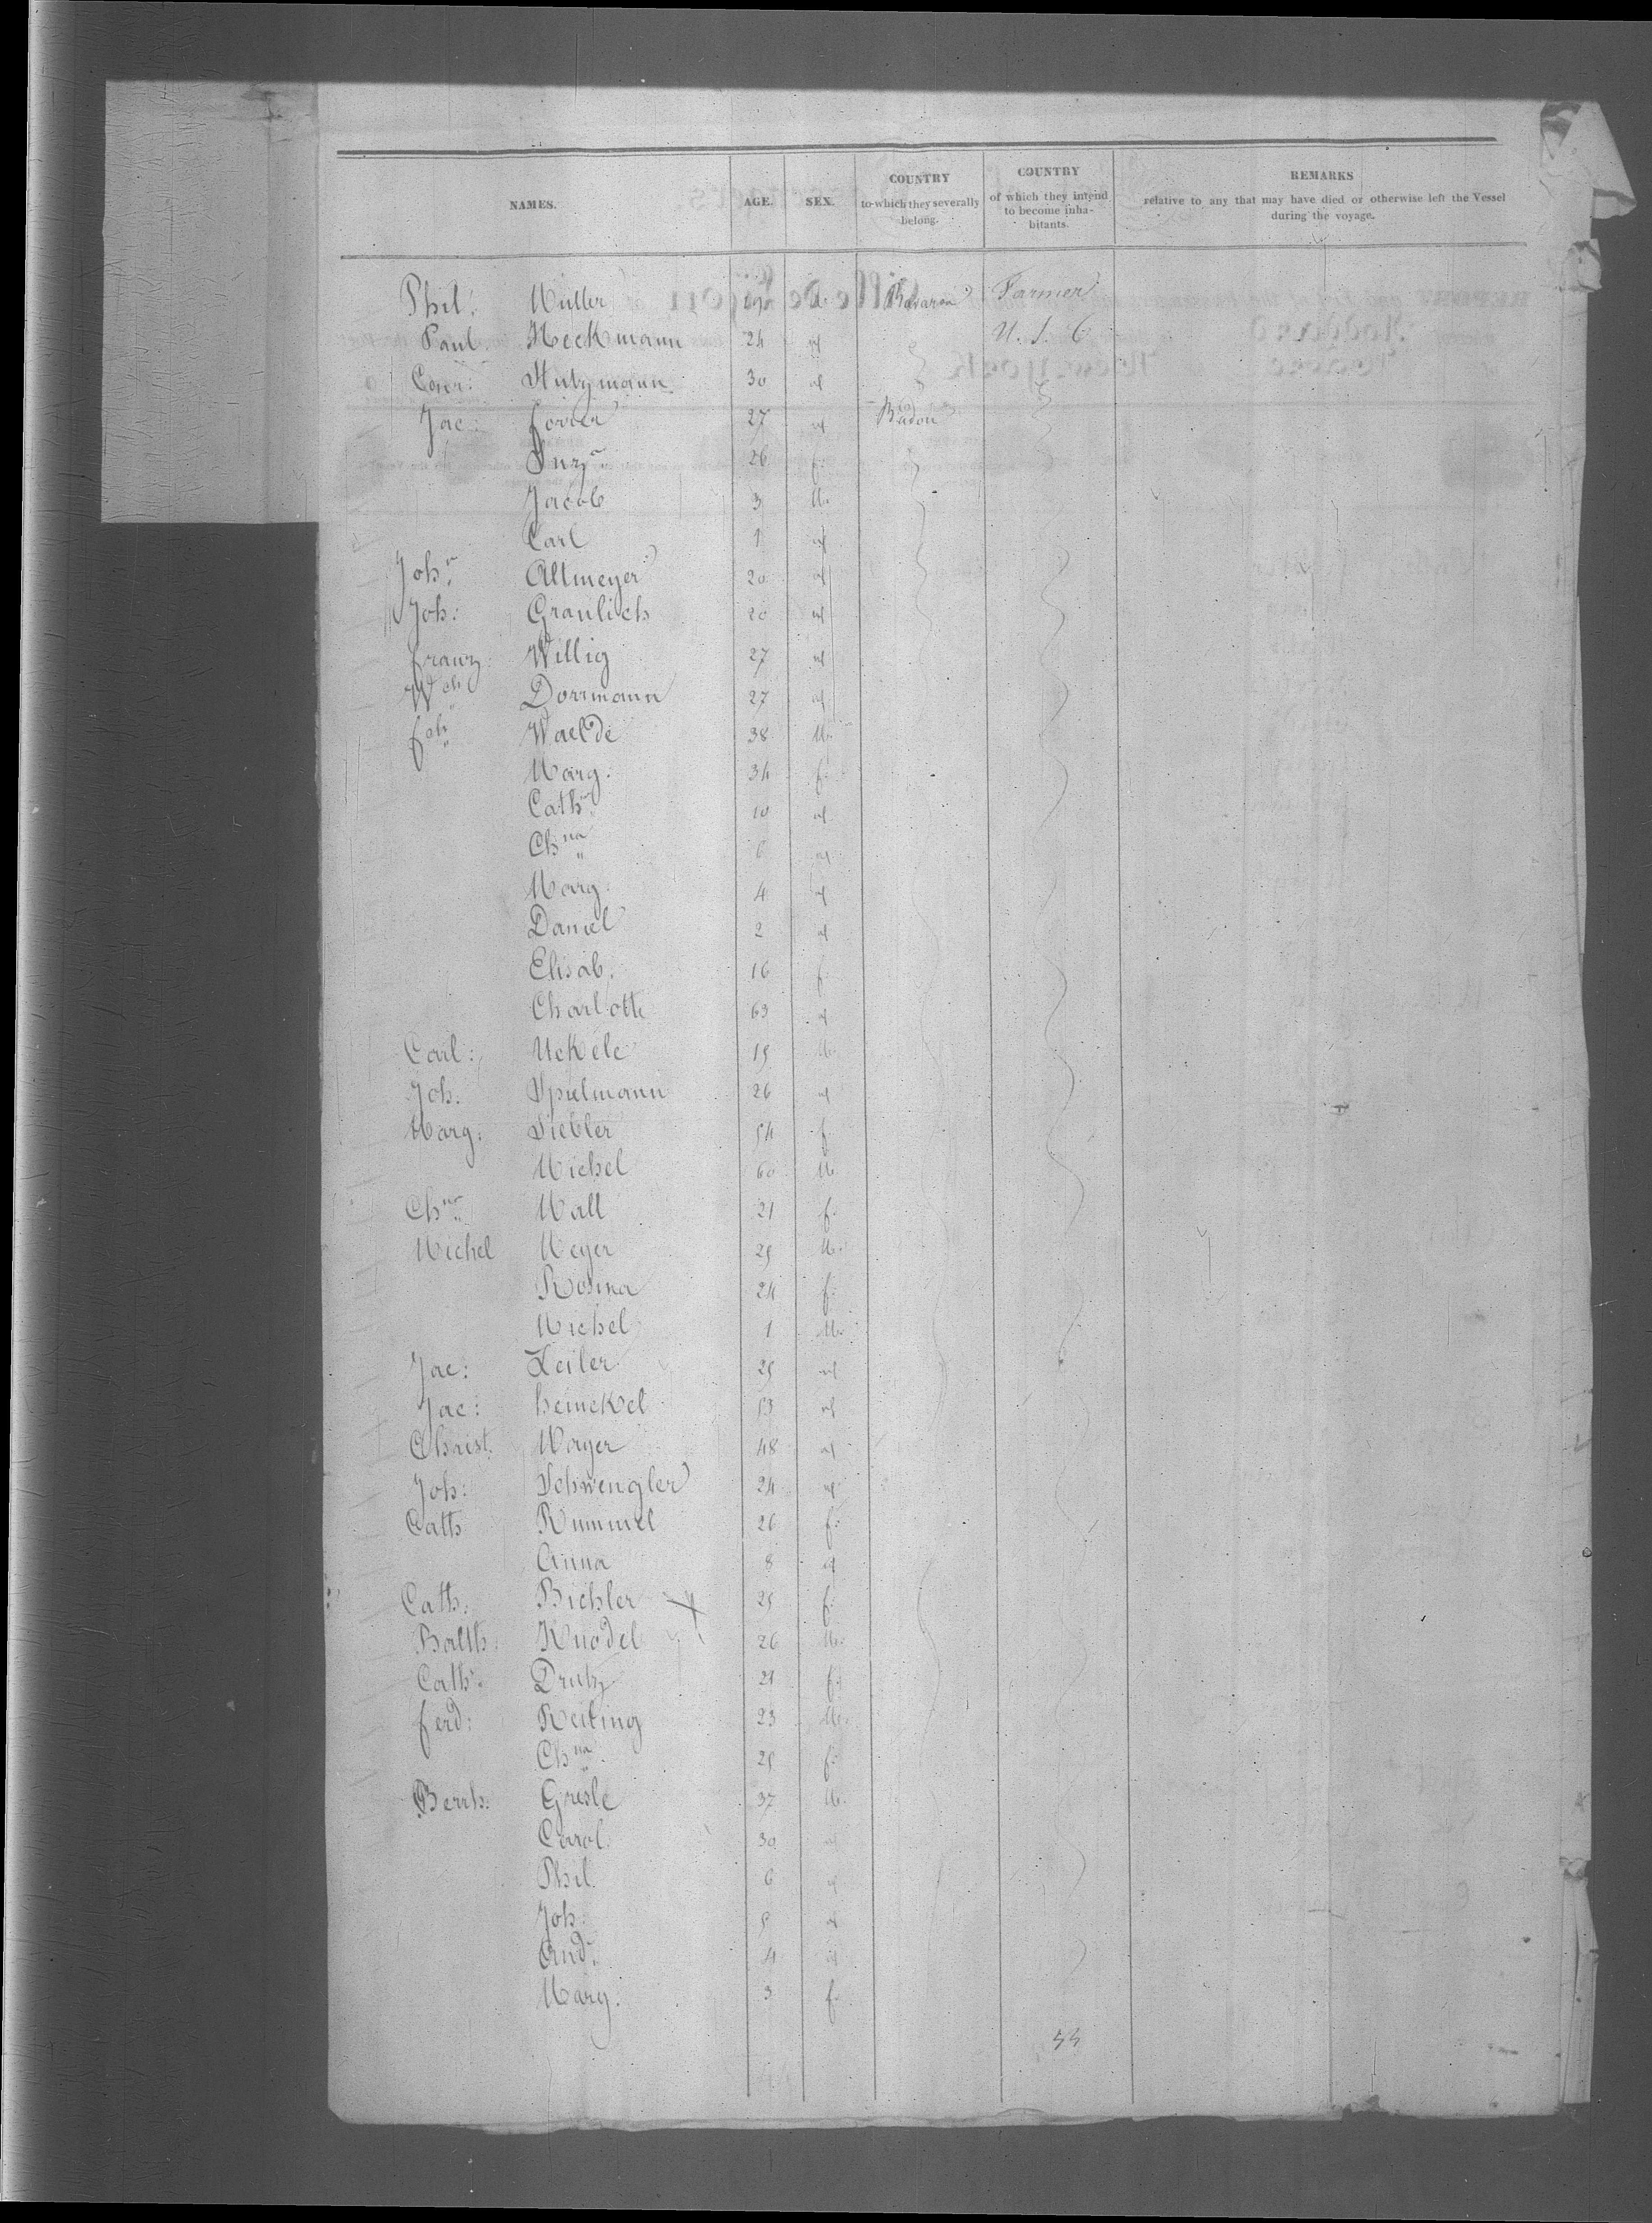 NAMES. AGE. SEX. COUNTRY to which they severally belong. COUNTRY of which they intend to become inhabitants. REMARKS relative to any that may have died or otherwise left the Vessel during the voyage.
Phil. Müller Bavaria Farmer
Paul Heckmann 24 " U. S.
Stutzmann 30 "
Jac: 27 " Baden
26 f.
Jacob 3 M.
Carl 1 "
Joh. Altmeyer 20 "
Joh: Graulich 20 "
Franz Willig 27 "
Dorrmann 27 "
Waelde 38 M.
Marg. 34 f.
Cath. 10 "
Chna "
Marg. 4 "
Daniel 2 "
Elisab. 16 f.
Charlotte 63 "
Carl: Uekele 19 M.
Joh. Spielmann 26 "
Marg: Siebler 54 f.
Michel 60 M.
Mall 21 f.
Michel Meyer 29 M.
Rosina 24 f.
Michel 1 M.
Jac: Zeiler 29 "
Jac: heinckel 53 "
Christ. Mayer 48 "
Joh: Schwengler 24 "
Cath Rummel 26 f.
Anna 8 "
Cath. Bichler 29 f.
Balth. Knodel 26 M.
Cath. Drutz 21 f.
Ferd: Reiling 23 M.
Chna 29 f.
Gresle 37 M.
Carol. 30 "
Phil. 6 "
Joh: 5 "
And. 4 "
Marg. 3 f.
44